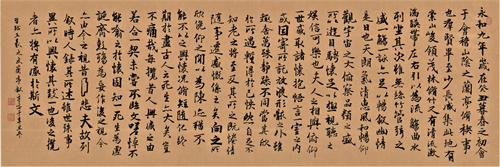 永和九年歲在癸丑暮春之初會
于會稽山陰之蘭亭脩稧事
也群賢畢至少長咸集此地有
崇山峻領茂林脩竹又有清流激
湍暎帶左右引以為流觴曲水
列坐其次雖無絲竹管弦之
盛一觴一詠亦足以暢敘幽情
是日也天朗氣清惠風和暢仰
觀宇宙之大俯察品類之盛
所以遊目騁懷足以極視聽之
娛信可樂也夫人之相與俯仰
一世或取諸懷抱悟言一室之內
或因寄所託放浪形骸之外雖
趣舍萬殊靜躁不同當其欣
於所遇暫得於己怏然自足不
知老之將至及其所之既惓情
隨事遷感慨係之矣向之所
欣俛仰之閒以為陳迹猶不
能不以之興懷況脩短隨化終
期於盡古人云死生亦大矣豈
不痛哉每攬昔人興感之由
若合一契未嘗不臨文嗟悼不
能喻之於懷固知一死生為虛
誕齊彭殤為妄作後之視今
亦由今之視昔悲夫故列
敘時人錄其所述雖世殊事
異所以興懷其致一也後之攬
者亦將有感於斯文